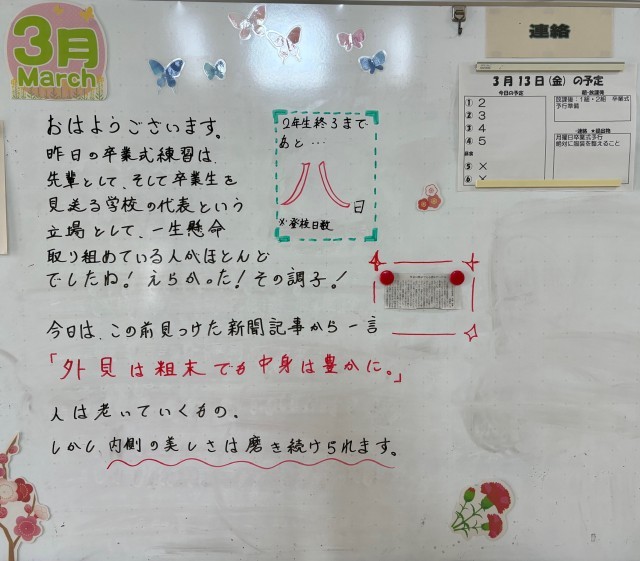 3月
March
おはようございます。
昨日の卒業式練習は、
先輩として、そして卒業生を
見送る学校の代表という
立場として、一生懸命
取り組めている人がほとんど
でしたね！えらかった！その調子！
今日は、この前見つけた新聞記事から一言
「外見は粗末でも中身は豊かに。」
人は老いていくもの。
しかし、内側の美しさは磨き続けられます。
2年生終了まで
あと…
八日
※登校日数
連絡
3月13日(金)の予定
今日の予定
① 2
② 3
③ 4
④ 5
⑤ ×
⑥ ×
放課後：1組・2組 卒業式
予行準備
連絡 ★提出物
月曜日卒業式予行
絶対に服装を整えること